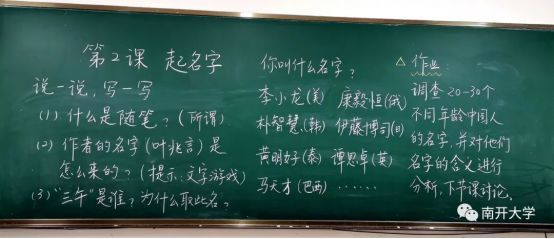 第2课 起名字
说一说，写一写
(1) 什么是随笔？(所谓)
(2) 作者的名字(叶兆言)是
怎么来的？(提示：文字游戏)
(3)“三午”是谁？为什么取此名？
你叫什么名字？
李小龙(美) 康毅恒(俄)
朴智慧(韩) 伊藤博司(日)
黄明好(泰) 谭思卓(英)
马天才(巴西) ……
△ 作业：
调查20-30个
不同年龄中国人
的名字，并对他们
名字的含义进行
分析，下节课讨论。
南开大学